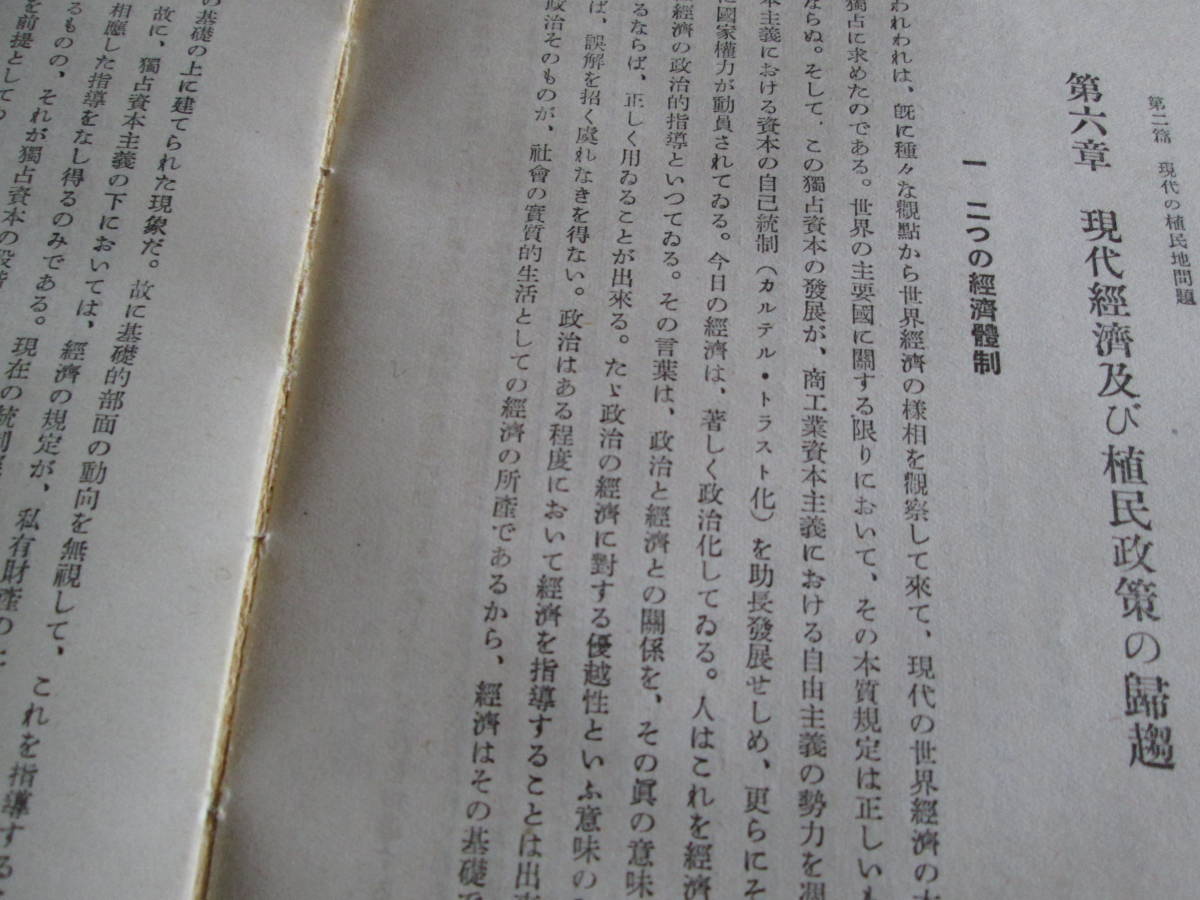 第二篇 現代の植民地問題
第六章 現代經濟及び植民政策の歸趨
一 二つの經濟體制
われわれは、既に種々な觀點から世界經濟の樣相を觀察して來て、現代の世界經濟の本
獨占に求めたのである。世界の主要國に關する限りにおいて、その本質規定は正しいも
ならぬ。そして、この獨占資本の發展が、商工業資本主義における自由主義の勢力を凋
本主義における資本の自己統制（カルテル・トラスト化）を助長發展せしめ、更らにそ
に國家權力が動員されてゐる。今日の經濟は、著しく政治化してゐる。人はこれを經濟
經濟の政治的指導といつてゐる。その言葉は、政治と經濟との關係を、その眞の意味
るならば、正しく用ゐることが出來る。たゞ政治の經濟に對する優越性といふ意味の
ば、誤解を招く虞れなきを得ない。政治はある程度において經濟を指導することは出來
政治そのものが、社會の實質的生活としての經濟の所產であるから、經濟はその基礎で
の基礎の上に建てられた現象だ。故に基礎的部面の動向を無視して、これを指導する
故に、獨占資本主義の下においては、經濟の規定が、私有財產の
相應した指導をなし得るのみである。現在の統制
るものの、それが獨占資本の段階
を前提として